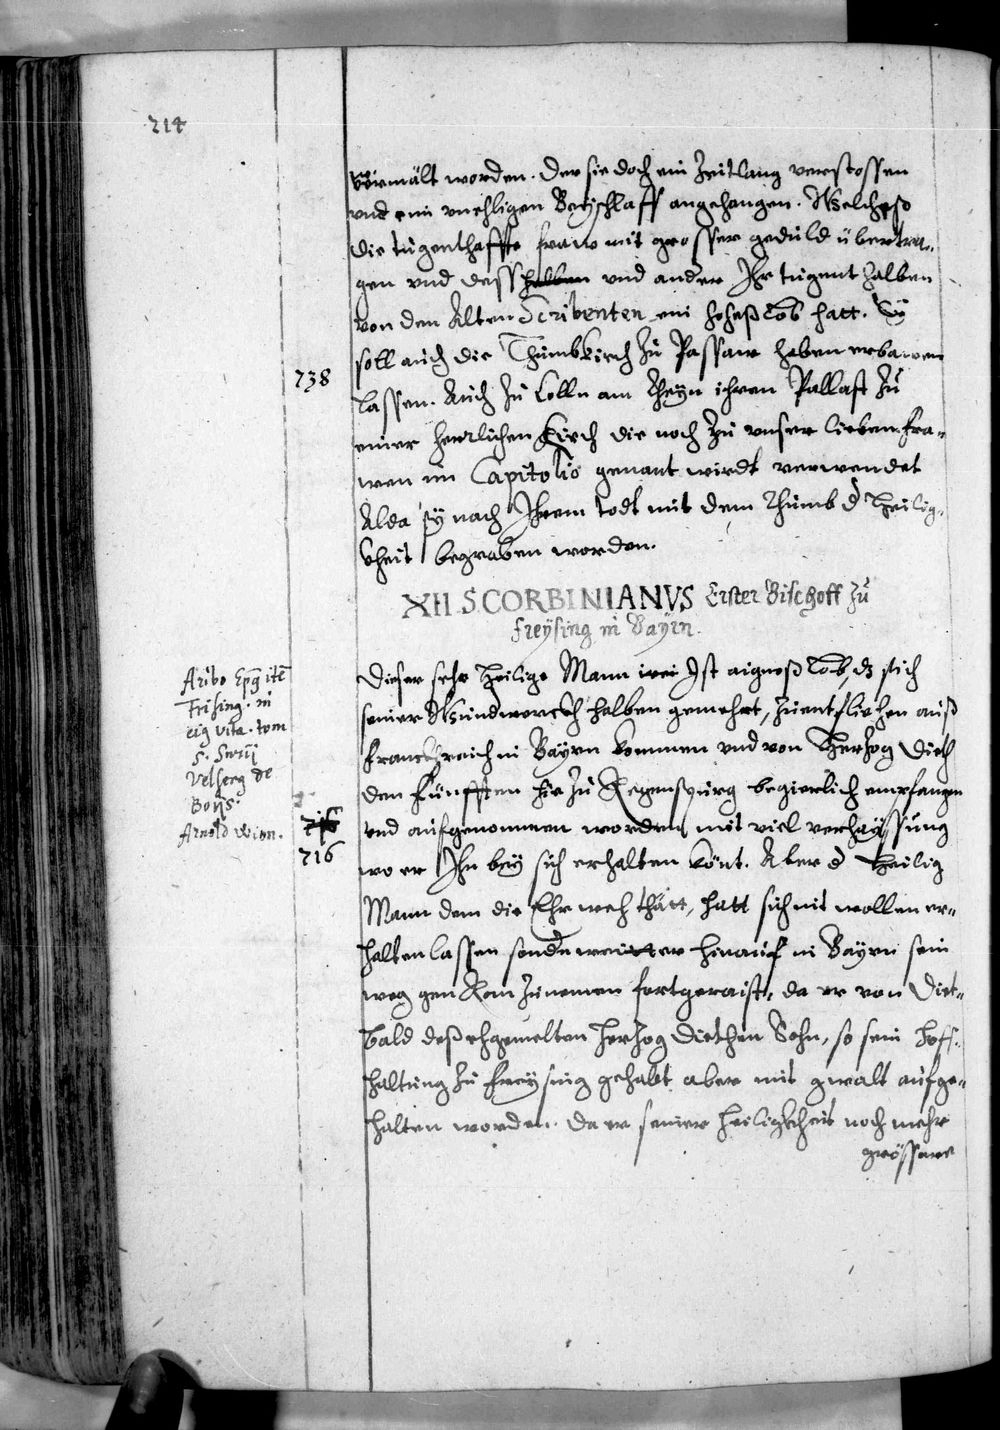 214
vermält worden. Der sie doch ein Zeitlang verstossen
vnd eim vnehligen Beyschlaff angehangen. Welcheß
die tugenthaffte fraw mit grosser geduld übertra-
gen vnd dess halben vnd ander Ihr tugent halben
von den Alten Scribenten ein hoheß Lob hatt. Sÿ
soll auch die Thumbkirch zu Passaw haben erbawen
738
lassen. Auch zu Colln am Rheyn ihren Pallast zu
einer herrlichen Kirch die noch zu vnser lieben Fra-
wen im Capitolio genant wirdt verwendet
Alda sÿ nach Ihrem todt mit dem Rhumb d Heilig-
kheit begraben worden.
XII S. CORBINIANVS Erster Bischoff zu
Freÿsing in Bayrn.
Aribo Epg itē
Frising. in
eig vita. tom
5. Surij
Velserg de
Boys.
Arnold Wion.
Dieser sehr Heilige Mann Ist aigneß Lob, dz sich
seiner Wunderwerckh halben gemehrt, zuentfliehen auß
Franckhreich in Bayrn kommen vnd von Herzog Dieth
den Fünfften hie zu Regenspurg begierlich empfangen
716
vnd aufgenommen worden mit viel verhayssung
716
wo er Ihn beÿ sich erhalten könt. Aber d Heilig
Mann dem die Ehr weh thätt, hatt sich nit wollen er-
halten lassen sondn weitter hinauf in Bayrn sein
weg gen Rom zunemen fortgeraist, da er von Diet-
bald deß ehgemelten Herzog Diethen Sohn, so sein Hoff-
haltung zu Freysing gehabt aber mit gwalt aufge-
halten worden. Da er seiner Heiligkheit noch mehr
grössere